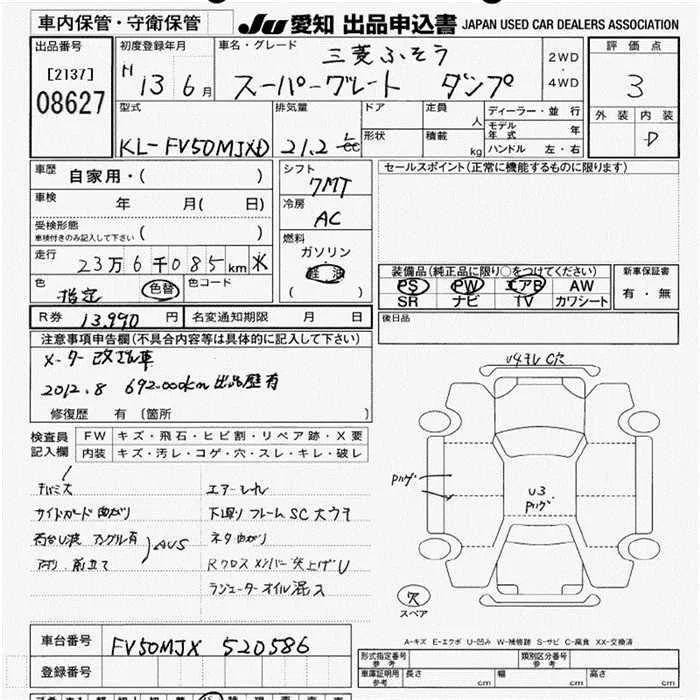 車内保管・守衛保管
JU 愛知 出品申込書 JAPAN USED CAR DEALERS ASSOCIATION
出品番号
[2137]
08627
初度登録年月
H 13 6月
車名・グレード
三菱ふそう
スーパーグレート ダンプ
2WD
・
4WD
評価点
3
外装 内装
D
型式
KL-FV50MJXD
排気量
21.2 cc
ドア
形状
定員
人
積載
kg
ディーラー・並行
モデル年式 年
ハンドル 左・右
車歴
自家用・( )
車検
年 月( 日)
受検形態
車検付きのみ記入して下さい ( )
走行
23万6千085km
色
指定
色替
色コード
シフト
7MT
冷房
AC
燃料
ガソリン
軽油
( )
セールスポイント(正常に機能するものに限ります)
装備品(純正品に限り○をつけてください)
PS PW エアB AW
SR ナビ TV カワシート
新車保証書
有・無
R券 13,990 円
名変通知期限 月 日
後日品
注意事項申告欄(不具合内容等は具体的に記入して下さい)
メーター改ざん車
2012.8 692.000km 出品歴有
修復歴 有 〔箇所 〕
検査員
記入欄
FW キズ・飛石・ヒビ割・リペア跡・X要
内装 キズ・汚レ・コゲ・穴・スレ・キレ・破レ
サイドガード曲がり
アングル有
AUS
エアーもれ
下廻り フレームSC大ウマ
ネタ曲がり
Rクロスメンバー突上げU
ラジエーターオイル混ス
U3
穴
スペア
車台番号
FV50MJX 520586
登録番号
A-キズ E-エクボ U-凹み W-補修跡 S-サビ C-腐食 XX-交換済
形式指定番号
参考
類別区分番号
参考
車庫証明用
参考
長さ cm
幅 cm
高さ cm